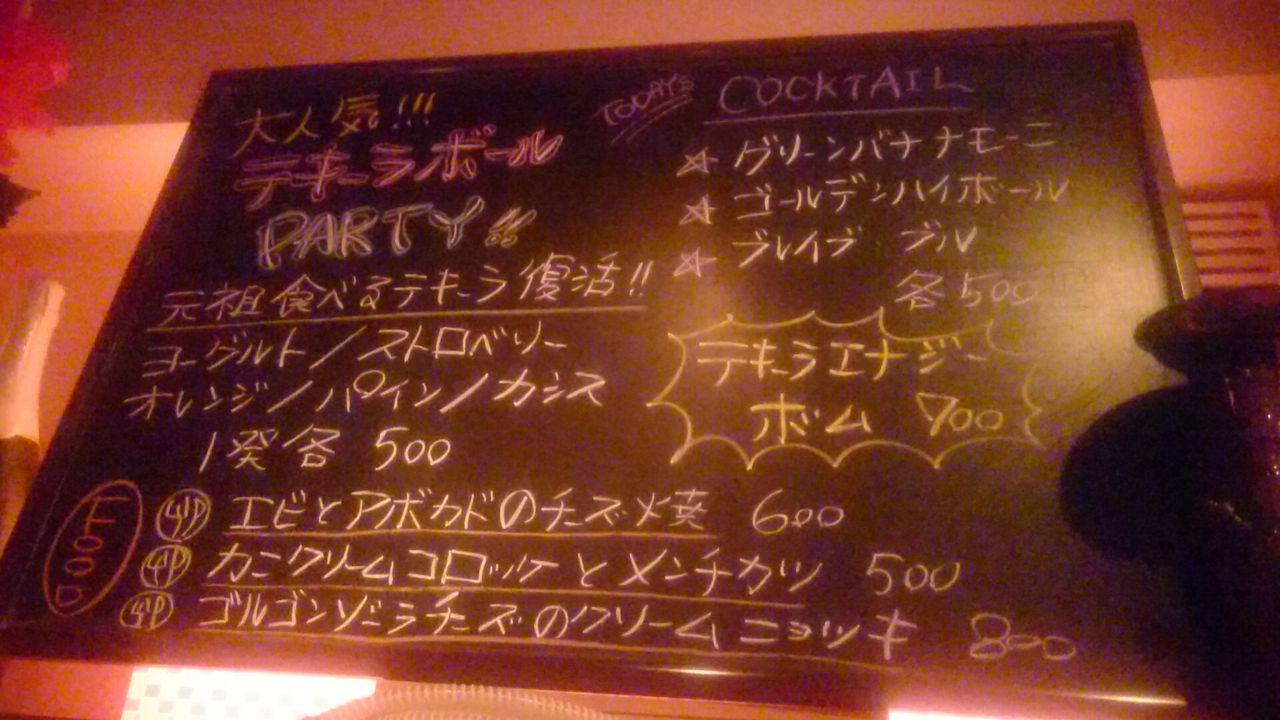 大人気!!!
テキーラボール
PARTY!!
元祖食べるテキーラ復活!!
ヨーグルト/ストロベリー
オレンジ/パイン/カシス
1発各 500
TODAY's COCKTAIL
☆ グリーンバナナモーニ
☆ ゴールデンハイボール
☆ ブレイブ・ブル
各500
テキーラエナジー
ボム 700
FOOD
エビとアボカドのチーズ焼 600
カニクリームコロッケとメンチカツ 500
ゴルゴンゾーラチーズのクリームニョッキ 800